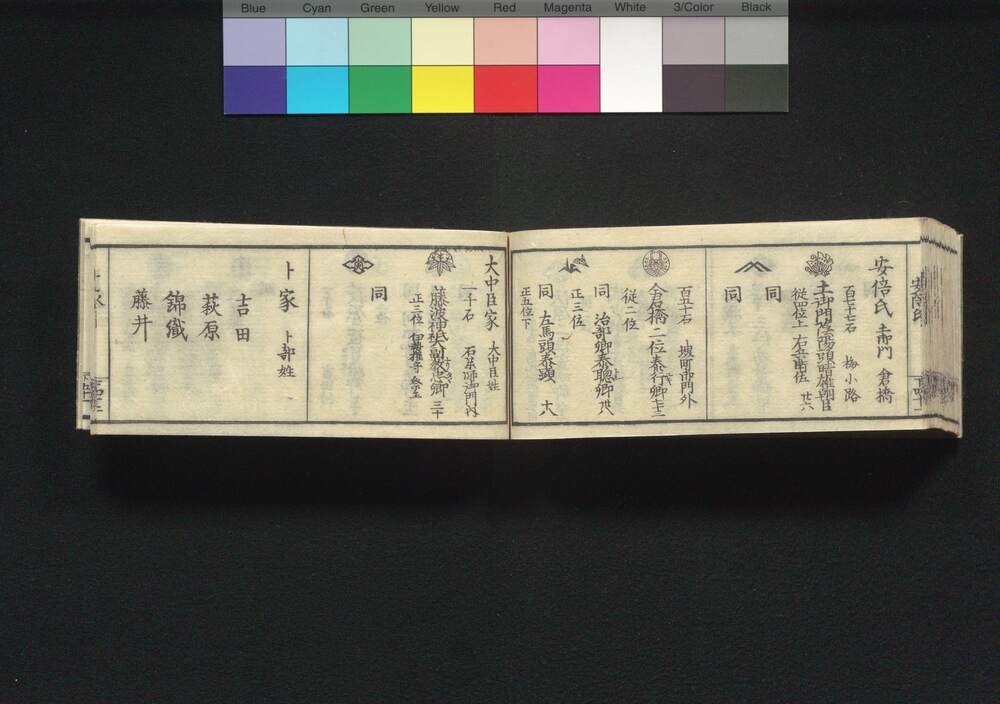 Blue Cyan Green Yellow Red Magenta White 3/Color Black
安倍氏 土御門 倉橋
百七十七石 梅小路
土御門陰陽頭晴雄朝臣
従四位上 右兵衛佐 廿六
同
同
百五十石 堺町御門外
倉橋二位泰行卿 七十三
従二位
同 治部卿泰聰卿 卅八
正三位
同 左馬頭泰顕 十八
正五位下
大中臣家 大中臣姓
一千石 石薬師御門内
藤波神祇大副教忠卿 三十
正三位
同
卜家 卜部姓
吉田
萩原
錦織
藤井